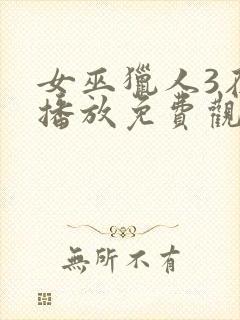 女巫獵人3在
播放免費觀
無所不有